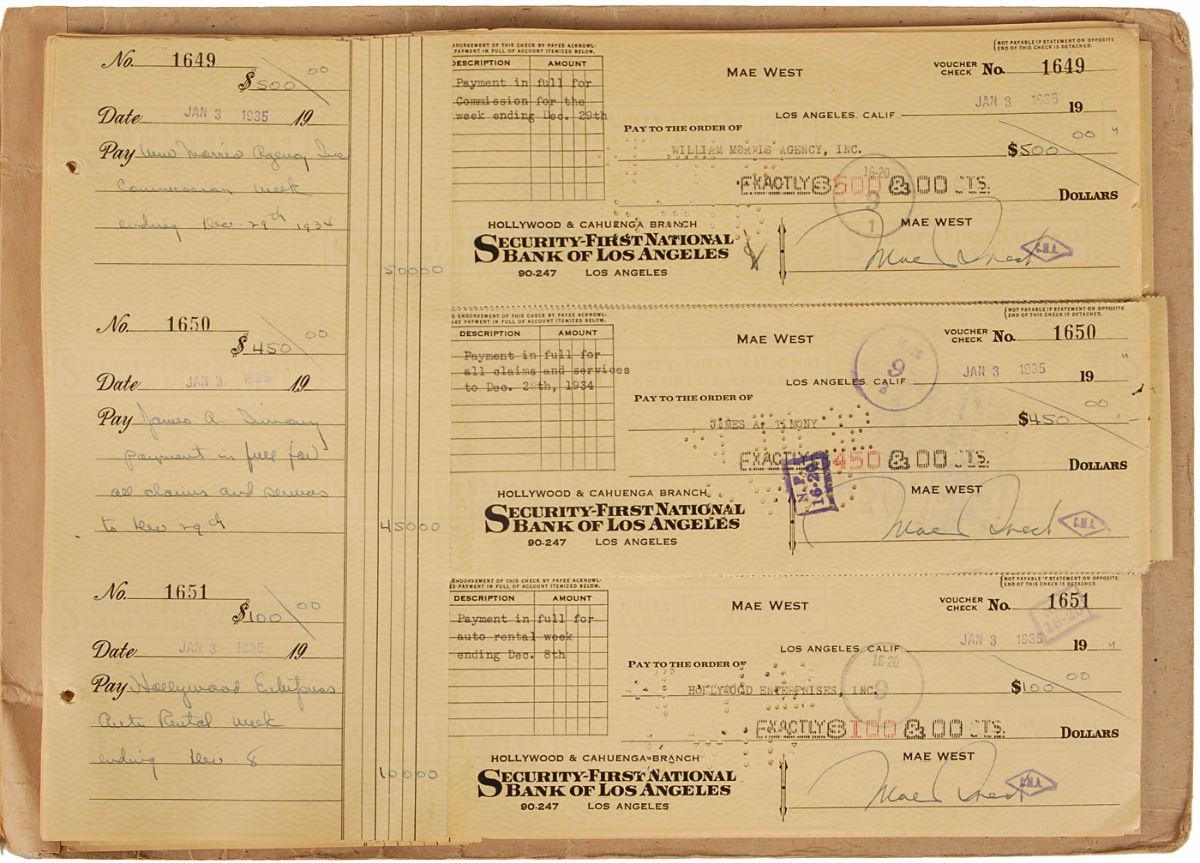 No. 1649
$500/00
Date JAN 3 1935 19
Pay Wm Morris Agency Inc
Commission week
ending Dec 29th 1934
50000
ENDORSEMENT OF THIS CHECK BY PAYEE ACKNOWL-
PAYMENT IN FULL OF ACCOUNT ITEMIZED BELOW.
DESCRIPTION AMOUNT
Payment in full for
Commission for the
week ending Dec. 29th
(NOT PAYABLE IF STATEMENT ON OPPOSITE
END OF THIS CHECK IS DETACHED.
MAE WEST
VOUCHER CHECK No. 1649
LOS ANGELES, CALIF. JAN 3 1935 19
PAY TO THE ORDER OF
WILLIAM MORRIS AGENCY, INC. $500 00
EXACTLY $500 & 00 CTS. DOLLARS
16-20
9
1
HOLLYWOOD & CAHUENGA BRANCH
SECURITY-FIRST NATIONAL
BANK OF LOS ANGELES
90-247 LOS ANGELES
MAE WEST
Mae West
G.M.A.
No. 1650
$450/00
Date JAN 3 1935 19
Pay James A. Timony
payment in full for
all claims and services
to Dec 29th
45000
ENDORSEMENT OF THIS CHECK BY PAYEE ACKNOWL-
PAYMENT IN FULL OF ACCOUNT ITEMIZED BELOW.
DESCRIPTION AMOUNT
Payment in full for
all claims and services
to Dec. 29th, 1934
(NOT PAYABLE IF STATEMENT ON OPPOSITE
END OF THIS CHECK IS DETACHED.
MAE WEST
VOUCHER CHECK No. 1650
LOS ANGELES, CALIF. JAN 3 1935 19
PAY TO THE ORDER OF
JAMES A. TIMONY $450 00
EXACTLY $450 & 00 CTS. DOLLARS
9
16-20
HOLLYWOOD & CAHUENGA BRANCH
SECURITY-FIRST NATIONAL
BANK OF LOS ANGELES
90-247 LOS ANGELES
MAE WEST
Mae West
G.M.A.
No. 1651
$100/00
Date JAN 3 1935 19
Pay Hollywood Enterprises
Auto Rental week
ending Dec 8
10000
ENDORSEMENT OF THIS CHECK BY PAYEE ACKNOWL-
PAYMENT IN FULL OF ACCOUNT ITEMIZED BELOW.
DESCRIPTION AMOUNT
Payment in full for
auto rental week
ending Dec. 8th
(NOT PAYABLE IF STATEMENT ON OPPOSITE
END OF THIS CHECK IS DETACHED.
MAE WEST
VOUCHER CHECK No. 1651
16-20
LOS ANGELES, CALIF. JAN 3 1935 19
PAY TO THE ORDER OF
HOLLYWOOD ENTERPRISES, INC. $100 00
EXACTLY $100 & 00 CTS. DOLLARS
16-20
9
1
HOLLYWOOD & CAHUENGA BRANCH
SECURITY-FIRST NATIONAL
BANK OF LOS ANGELES
90-247 LOS ANGELES
MAE WEST
Mae West
G.M.A.